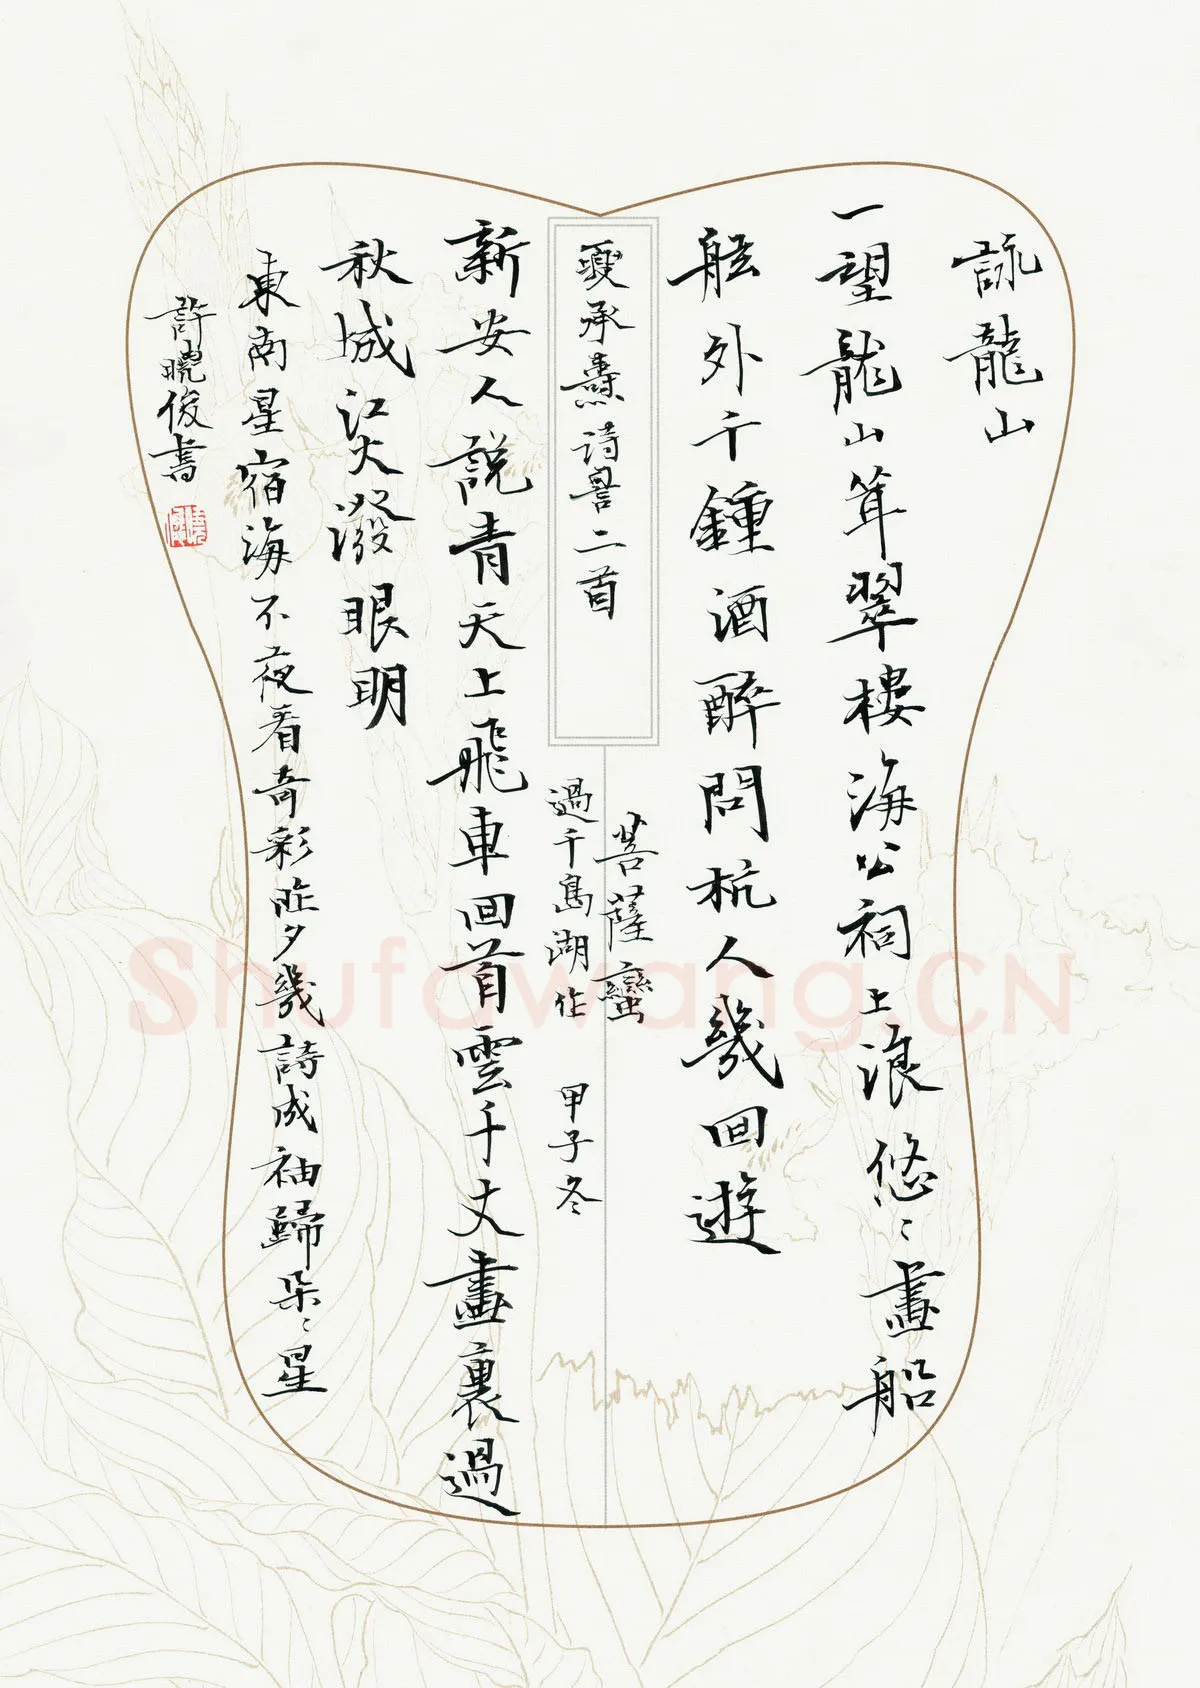 詠龍山
一望龍山聳翠樓海公祠上浪悠〻畫船
舷外千鍾酒醉問杭人幾回遊
夏承燾詩詈二首
菩薩蠻
過千島湖作 甲子冬
新安人說青天上飛車回首雲千丈畫裏過
秋城江火潑眼明
東南星宿海不夜看奇彩昨夕幾詩成袖歸朵〻星
許曉俊書
Shufawang.CN